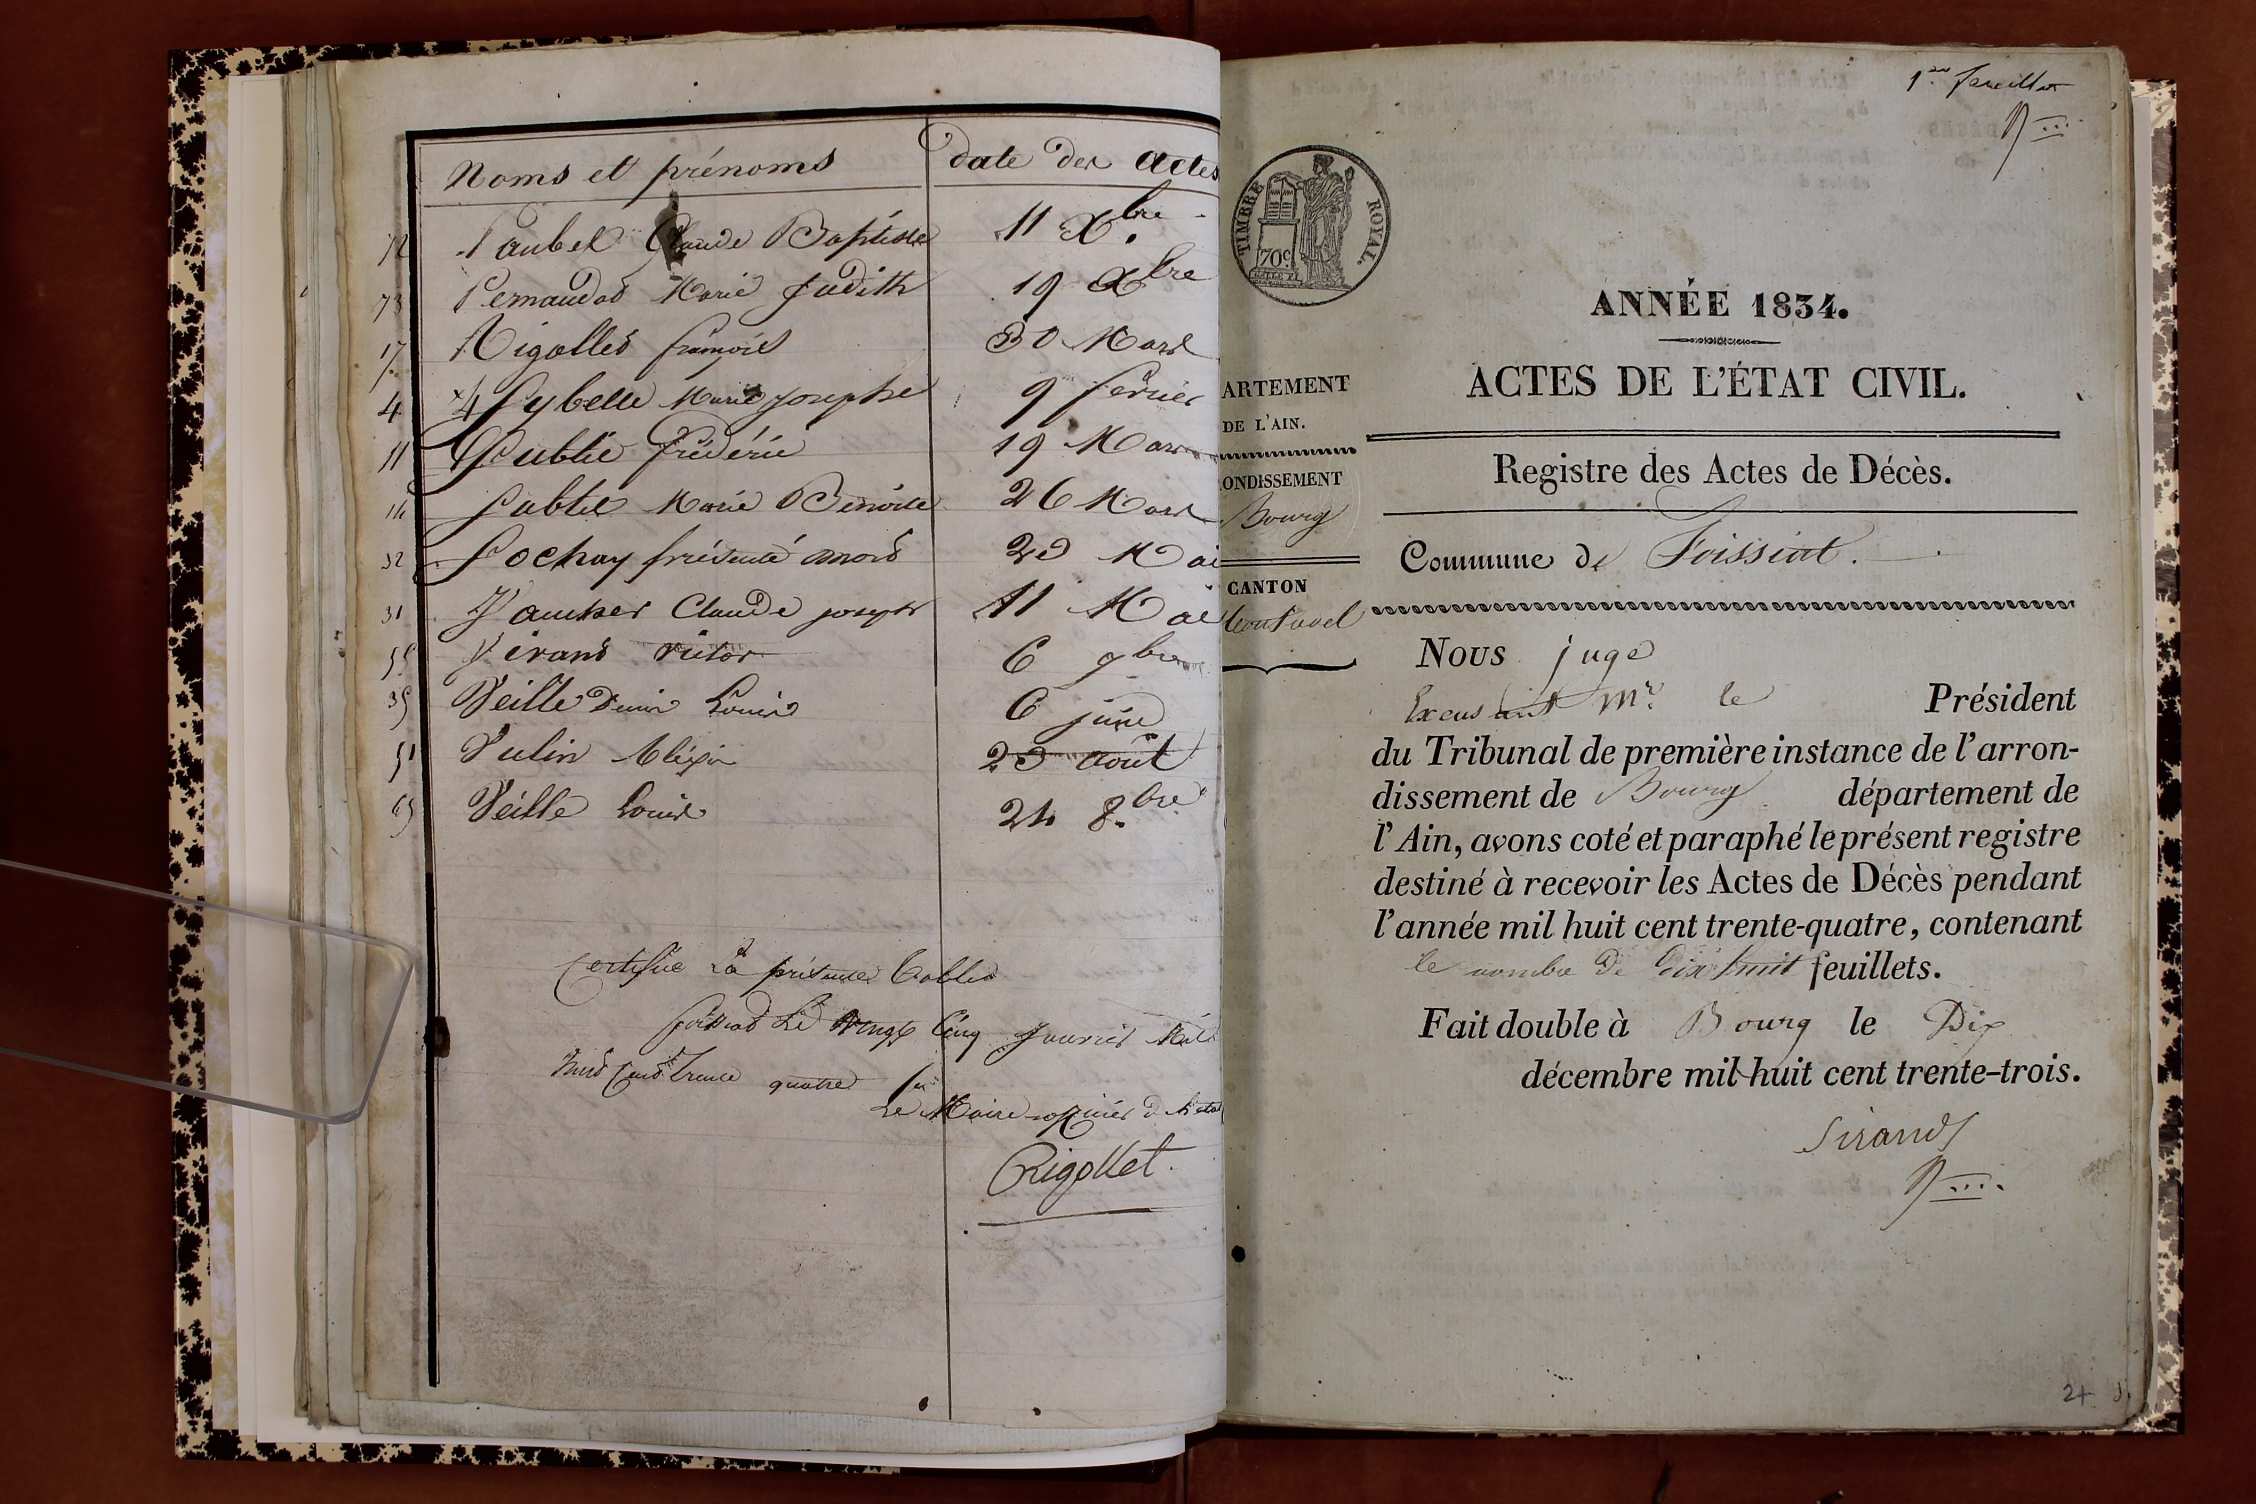 Noms et prénoms date des actes
72 Claude Baptiste 11 Xbre
73 Marie Judith 19 Xbre
17 françois 30 Mars
4 Marie josephe 9 fevrier
11 frédéric 19 Mars
14 Marie Benoite 26 Mars
32 Pochay présenté mort Mai
31 Claude joseph 11 Mai
55 victor 6 9bre
35 Veille Denis Louis 6 juin
51 Vulin Aléxis août
69 Veille Louis 24 8bre
Certifié La présente
Le vingt Cinq Janvier Mil
huit Cent trente quatre
Le Maire officier d
Rigollet
1er feuillet
TIMBRE ROYAL.
70c
ANNÉE 1834.
ACTES DE L'ÉTAT CIVIL.
ARTEMENT
DE L'AIN.
ONDISSEMENT
Bourg
CANTON
Registre des Actes de Décès.
Commune de Foissiat.
Nous juge
Mr. le Président
du Tribunal de première instance de l'arron-
dissement de Bourg département de
l'Ain, avons coté et paraphé le présent registre
destiné à recevoir les Actes de Décès pendant
l'année mil huit cent trente-quatre, contenant
le nombre de dix huit feuillets.
Fait double à Bourg le Dix
décembre mil huit cent trente-trois.
Sirand
24